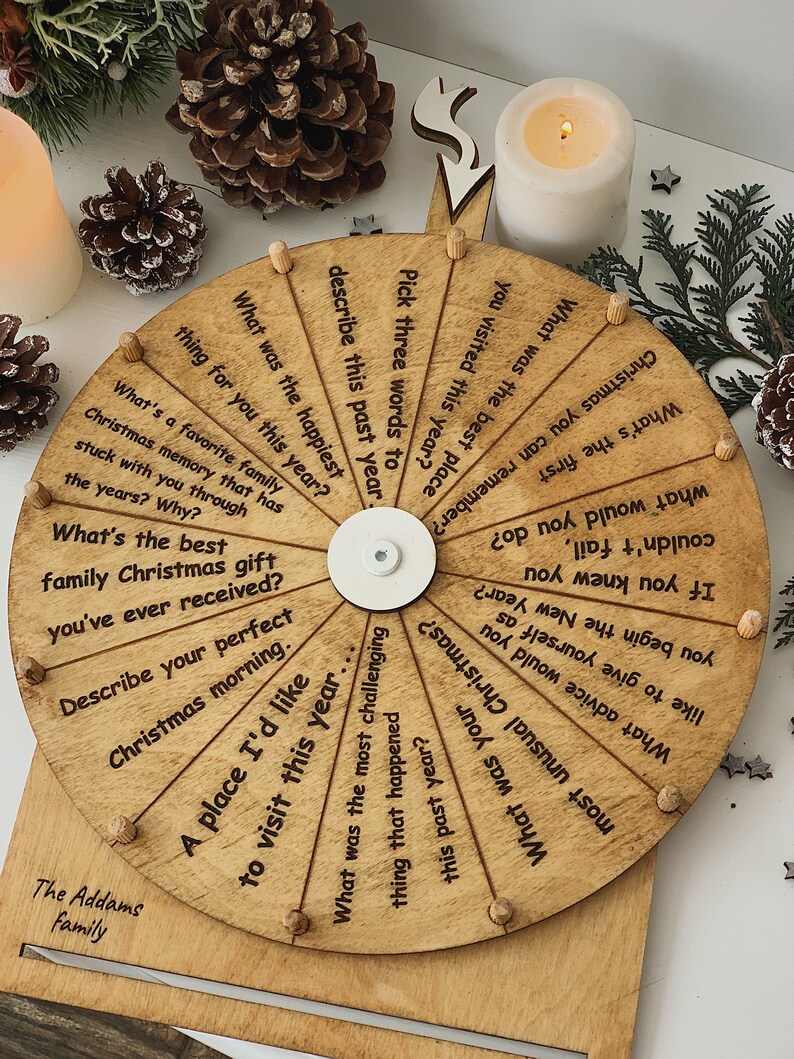 Pick three words to
describe this past year.
What was the best place
you visited this year?
What's the first
Christmas you can remember?
If you knew you
couldn't fail,
what would you do?
What advice would you
like to give yourself as
you begin the New Year?
What was your
most unusual Christmas?
What was the most challenging
thing that happened
this past year?
A place I'd like
to visit this year...
Describe your perfect
Christmas morning.
What's the best
family Christmas gift
you've ever received?
What's a favorite family
Christmas memory that has
stuck with you through
the years? Why?
What was the happiest
thing for you this year?
The Addams
family